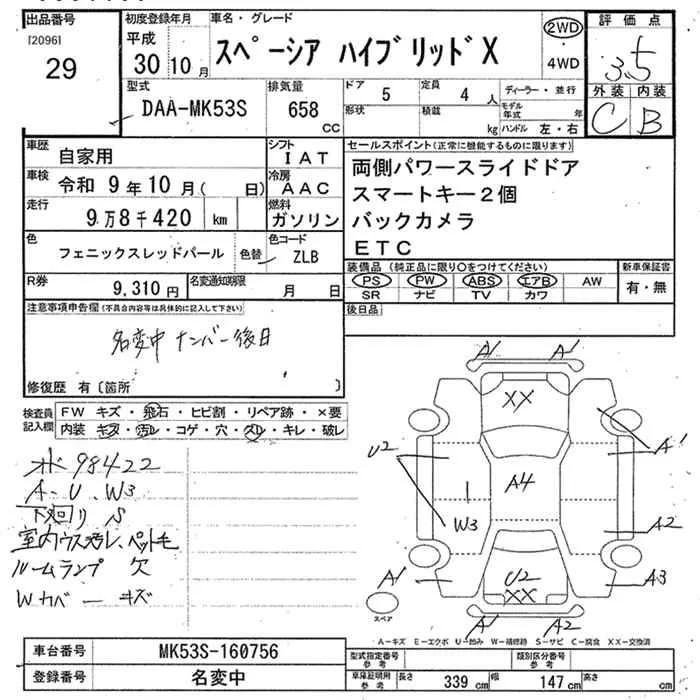 出品番号
[2096]
29
初度登録年月
平成
30 10月
車名・グレード
スペーシア ハイブリッドX
2WD
・
4WD
評価点
3.5
外装 内装
C B
型式
DAA-MK53S
排気量
658
CC
ドア
5
定員
4 人
ディーラー・並行
形状
積載
kg
モデル年式
年
ハンドル 左・右
車歴
自家用
シフト
IAT
車検
令和 9年10月( 日)
冷房
AAC
走行
9万8千420 km
燃料
ガソリン
色
フェニックスレッドパール
色替
色コード
ZLB
R券
9,310円
名変通知期限
月 日
セールスポイント(正常に機能するものに限ります)
両側パワースライドドア
スマートキー2個
バックカメラ
ETC
装備品 (純正品に限り○をつけてください)
PS PW ABS エアB AW
SR ナビ TV カワ
新車保証書
有・無
後日品
注意事項申告欄(不具合内容等は具体的に記入して下さい)
名変中 ナンバー後日
修復歴 有〔箇所 〕
検査員記入欄
FW キズ・飛石・ヒビ割・リペア跡・×要
内装 キズ・汚レ・コゲ・穴・スレ・キレ・破レ
98422
A-U、W3
下廻り S
室内ウス汚レ、ペット毛
ルームランプ 欠
Wカバーキズ
A1 A1
XX
U2
A1
A4
W3
A2
A1
U2
XX
A3
スペア
A1 A2
A-キズ E-エクボ U-凹み W-補修跡 S-サビ C-腐食 XX-交換済
車台番号
MK53S-160756
登録番号
名変中
型式指定番号
参考
類別区分番号
参考
車庫証明用
参考
長さ
339 cm
幅
147 cm
高さ
cm